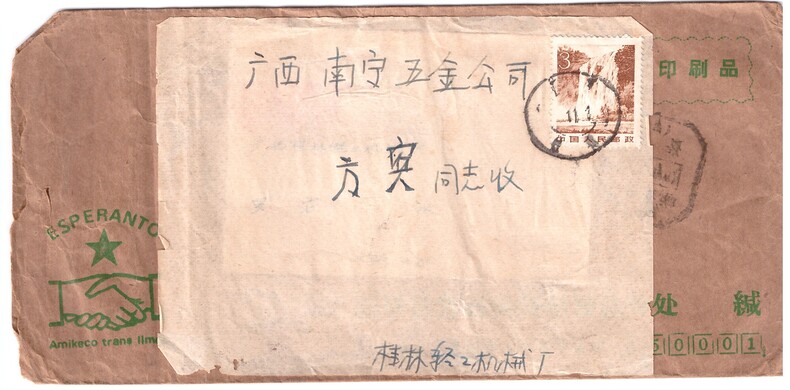 广西 南宁五金公司
3
中国人民邮政
印刷品
方 同志收
ESPERANTO
Amikeco trans limi
处 缄
50001
桂林轻工机械厂